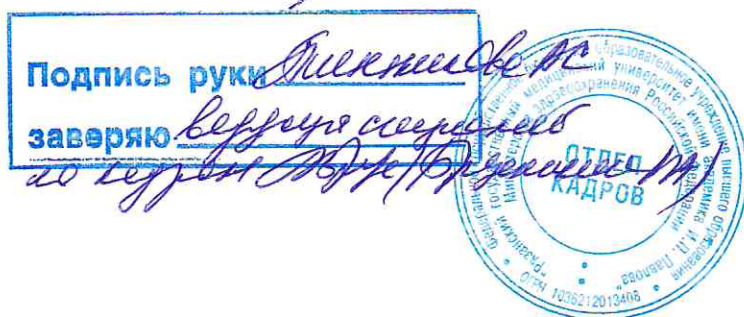 Подпись руки
заверяю ведущий специалист
по кадрам
ОТДЕЛ
КАДРОВ
Федеральное государственное бюджетное образовательное учреждение высшего образования
"Рязанский государственный медицинский университет имени академика И.П. Павлова"
Министерства здравоохранения Российской Федерации
ОГРН 1036212013408